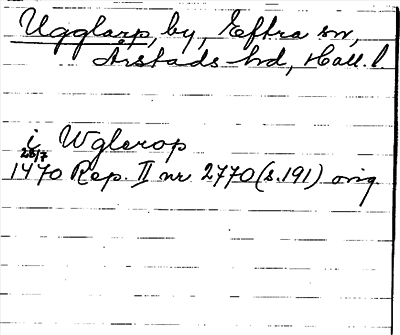 Ugglarp, by, Eftra sn,
Årstads hd, Hall. l.
i Wglerop
25/7
1470 Rep. II nr 2770 (s. 191) orig